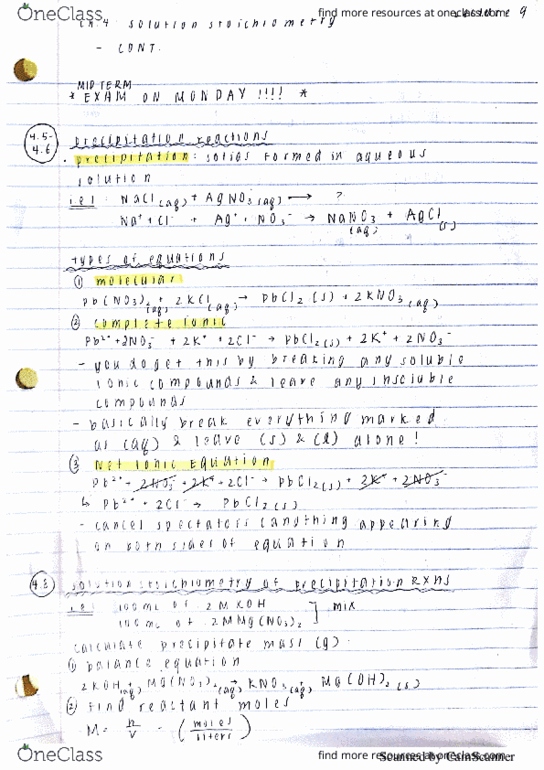 OneClass
find more resources at oneclass.com
9
Ch. 4 solution stoichiometry
- CONT.
MIDTERM
* EXAM ON MONDAY !!!! *
4.5-
4.6
precipitation reactions
• precipitation: solids formed in aqueous
solution
i.e. NaCl (aq) + AgNO₃ (aq) → ?
Na⁺ + Cl⁻ + Ag⁺ + NO₃⁻ → NaNO₃ (aq) + AgCl (s)
types of equations
① molecular
Pb(NO₃)₂ (aq) + 2KCl (aq) → PbCl₂ (s) + 2KNO₃ (aq)
② complete ionic
Pb²⁺ + 2NO₃⁻ + 2K⁺ + 2Cl⁻ → PbCl₂ (s) + 2K⁺ + 2NO₃⁻
- you do get this by breaking any soluble
ionic compounds & leave any insoluble
compounds
- basically break everything marked
as (aq) & leave (s) & (l) alone!
③ Net Ionic Equation
Pb²⁺ + 2NO₃⁻ + 2K⁺ + 2Cl⁻ → PbCl₂ (s) + 2K⁺ + 2NO₃⁻
↳ Pb²⁺ + 2Cl⁻ → PbCl₂ (s)
- cancel spectators (anything appearing
on both sides of equation
solution stoichiometry of precipitation RXNS
i.e. 100 mL of .2M KOH
100 mL of .2M Mg(NO₃)₂ ] mix
calculate precipitate mass (g).
① balance equation
2KOH (aq) + Mg(NO₃)₂ (aq) → KNO₃ (aq) + Mg(OH)₂ (s)
② find reactant moles
M = n/V = (moles/liters)
OneClass
find more resources at oneclass.com
Scanned by CamScanner